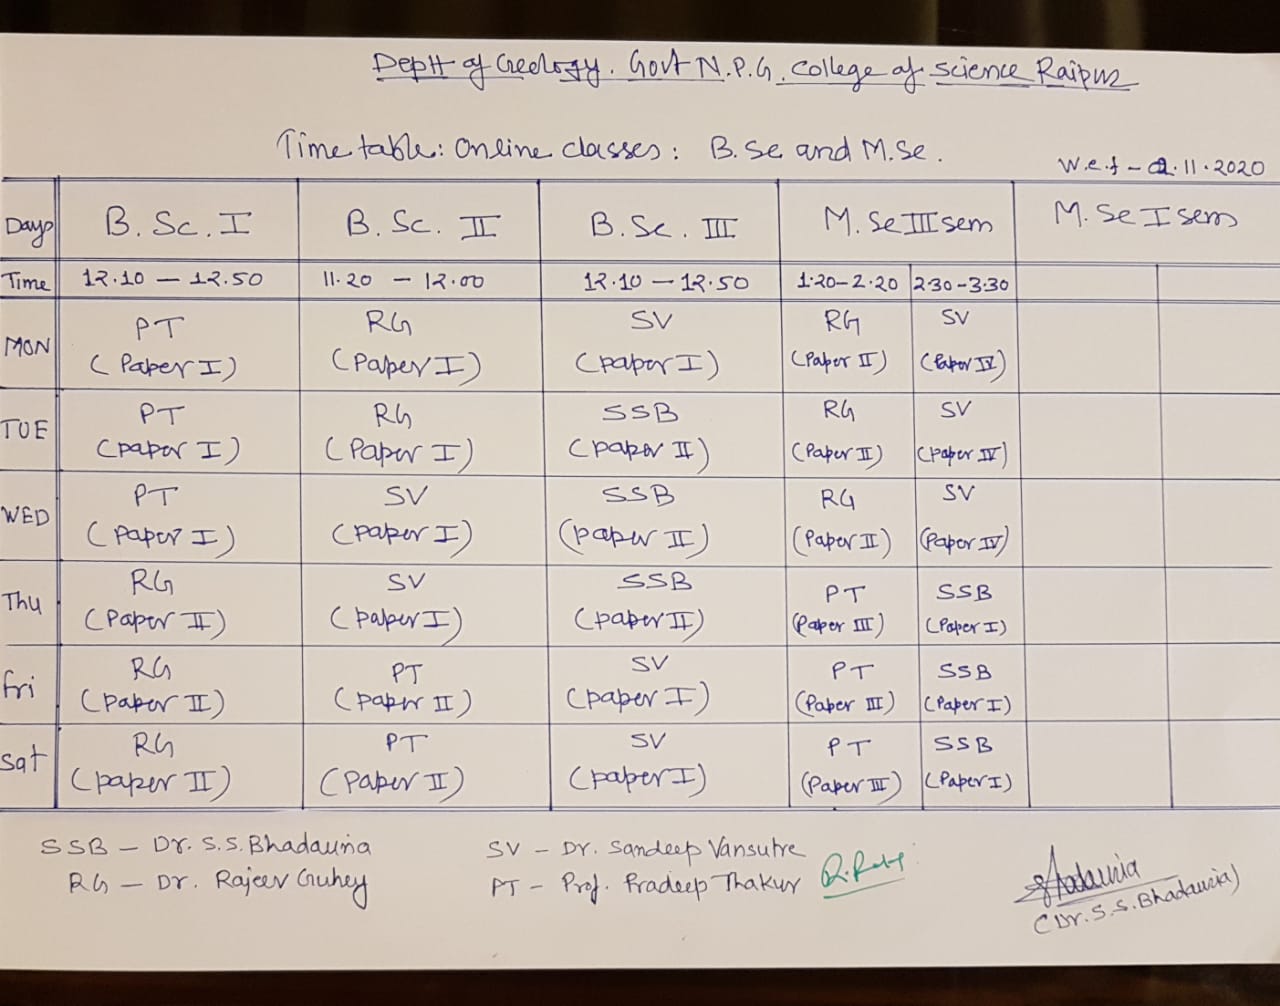 Deptt of Geology. Govt N.P.G. College of Science Raipur
Time table: Online classes: B.Sc and M.Sc.
W.e.f - 2.11.2020
Days B.Sc. I B.Sc. II B.Sc. III M.Sc III sem M.Sc I sem
Time 12.10 — 12.50 11.20 — 12.00 12.10 — 12.50 1.20-2.20 2.30-3.30
MON PT RG SV RG SV
(Paper I) (Paper I) (paper I) (Paper II) (Paper IV)
TUE PT RG SSB RG SV
(paper I) (Paper I) (paper II) (Paper II) (paper IV)
WED PT SV SSB RG SV
(Paper I) (paper I) (paper II) (Paper II) (Paper IV)
Thu RG SV SSB PT SSB
(Paper II) (paper I) (paper II) (Paper III) (Paper I)
Fri RG PT SV PT SSB
(Paper II) (paper II) (paper I) (Paper III) (Paper I)
Sat RG PT SV PT SSB
(paper II) (Paper II) (paper I) (Paper III) (Paper I)
SSB — Dr. S.S. Bhadauria SV — Dr. Sandeep Vansutre
RG — Dr. Rajeev Guhey PT — Prof. Pradeep Thakur
(Dr. S.S. Bhadauria)